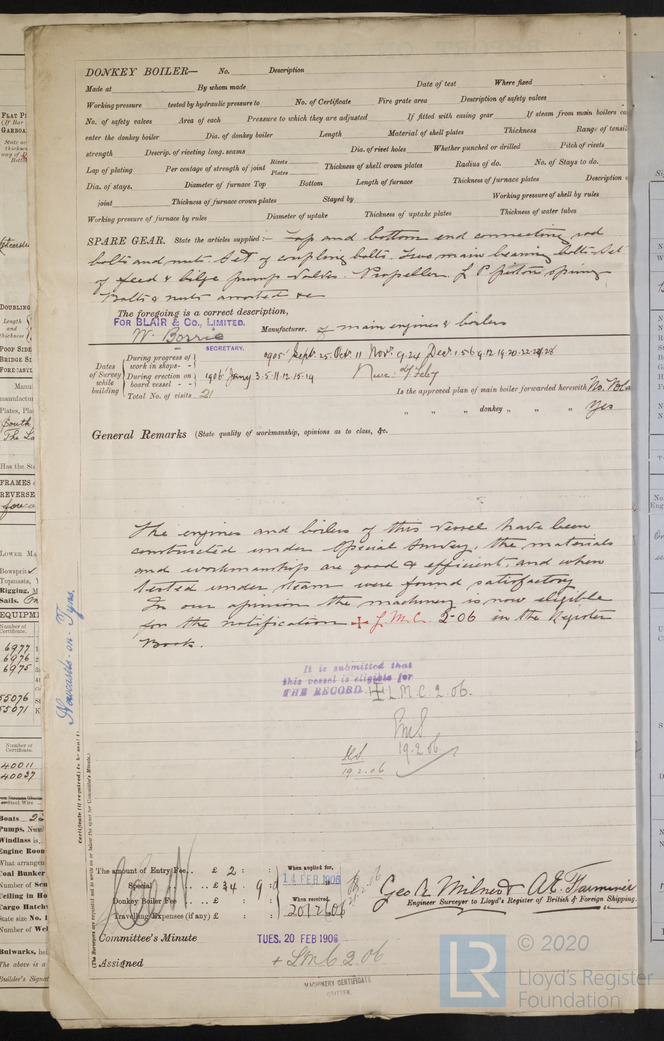 DONKEY BOILER— No. Description
Made at By whom made Date of test Where fixed
Working pressure tested by hydraulic pressure to No. of Certificate Fire grate area Description of safety valves
No. of safety valves Area of each Pressure to which they are adjusted If fitted with easing gear If steam from main boilers can
enter the donkey boiler Dia. of donkey boiler Length Material of shell plates Thickness Range of tensil
strength Descrip. of riveting long. seams Dia. of rivet holes Whether punched or drilled Pitch of rivets
Lap of plating Per centage of strength of joint Rivets Plates Thickness of shell crown plates Radius of do. No. of Stays to do.
Dia. of stays. Diameter of furnace Top Bottom Length of furnace Thickness of furnace plates Description o
joint Thickness of furnace crown plates Stayed by Working pressure of shell by rules
Working pressure of furnace by rules Diameter of uptake Thickness of uptake plates Thickness of water tubes
SPARE GEAR. State the articles supplied:— Top and bottom end connecting rod
bolts and nuts Set of coupling bolts. Two main bearing bolts. Set
of feed & bilge pump valves. Propeller. L P piston springs
Bolts & nuts assorted &c
The foregoing is a correct description,
FOR BLAIR & Co., LIMITED.
W. Borrie Manufacturer. of main engines & boilers
SECRETARY.
Dates of Survey while building
During progress of work in shops - - 1905 Sept. 25. Oct. 11 Nov. 9. 24 Dec. 1. 5. 6. 9. 12. 19. 20. 22. 28
During erection on board vessel - - - 1906 Jany 3. 5. 11. 12. 15. 19
Total No. of visits 21
Is the approved plan of main boiler forwarded herewith No.
" " " donkey " " " Yes
General Remarks (State quality of workmanship, opinions as to class, &c.
The engines and boilers of this vessel have been
constructed under Special Survey, the materials
and workmanship are good & efficient, and when
tested under steam were found satisfactory
In our opinion the machinery is now eligible
for the notification + L.M.C. 2-06 in the Register
Book.
It is submitted that
this vessel is eligible for
THE RECORD + L.M.C. 2.06.
19.2.06
19.2.06
Newcastle-on-Tyne.
Certificate (if required) to be sent to
(The Surveyors are requested not to write on or below the space for Committee's Minute.)
The amount of Entry Fee .. £ 2 : : When applied for,
14 FEB 1906
Special ... .. £ 34 . 9 . 0
Donkey Boiler Fee ... .. £ : : When received,
Travelling Expenses (if any) £ : : 20/2/06
Geo A. Milner & A.E. Farminer
Engineer Surveyor to Lloyd's Register of British & Foreign Shipping.
Committee's Minute TUES. 20 FEB 1906
Assigned + LMC 2.06
MACHINERY CERTIFICATE
WRITTEN.
LR
© 2020
Lloyd's Register
Foundation
DOUBLING
Length
and
thickness
BRIDGE S
Has the St
FRAMES
REVERSE
Rigging,
Sails.
EQUIPM
Number of
Certificate.
6977
6976
6975
55076
55071
Number of
Certificate.
40011
40037
Boats
Pumps,
Windlass is,
Engine Room
What arrangem
Coal Bunker
Number of Scu
Ceiling in Ho
Cargo Hatch
State size No. 1
Number of We
Bulwarks,
The above is a
Builder's Signat